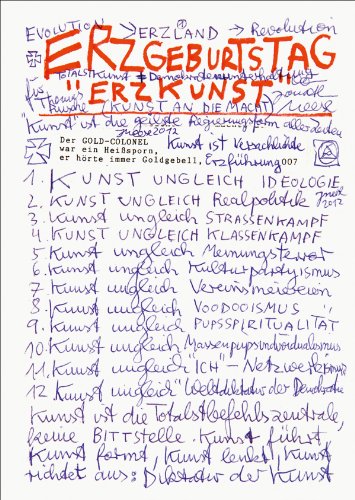 EVOLUTION > ERZLAND > Revolution
ERZGEBURTSTAG
TOTALSTKunst = Demokratenunterhaltung
"ERZKUNST"
für Thomas
(KUNST AN DIE MACHT)
Meese
"Kunst" ist die geilste Regierungsform aller Zeiten
Meese 2012
Der GOLD-COLONEL
war ein Heißsporn,
er hörte immer Goldgebell,
Kunst ist Verschlichte
Erzführung 007
1. KUNST UNGLEICH IDEOLOGIE
2. KUNST UNGLEICH Realpolitik
Meese 2012
3. Kunst ungleich STRASSENKAMPF
4. KUNST UNGLEICH KLASSENKAMPF
5. Kunst ungleich Meinungsterror
6. Kunst ungleich Kulturpartyismus
7. Kunst ungleich Vereinsmeiereien
8. Kunst ungleich VOODOOISMUS
9. Kunst ungleich PUPSSPIRITUALITÄT
10. Kunst ungleich Massenpupsindividualismus
11. Kunst ungleich "ICH"-Netzwerkerei
12. Kunst ungleich "Weltdiktatur der Demokratie
Kunst ist die Totalstbefehlszentrale,
keine BITTSTELLE. Kunst führt,
Kunst formt, Kunst lenkt, Kunst
richtet aus: Diktatur der Kunst